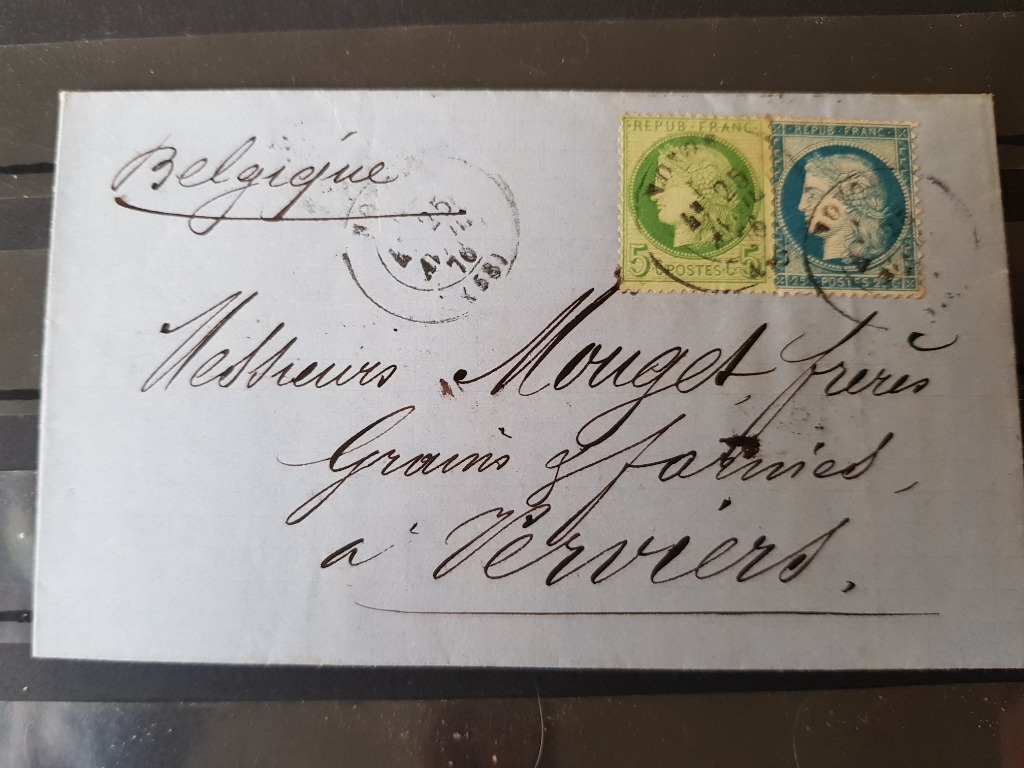 Belgique
REPUB FRANC
5 C POSTES C 5
REPUB FRANC
25 C POSTES 25 C
25
76
(58)
25
Messieurs Mouget, frères
Grains & farines,
à Verviers.